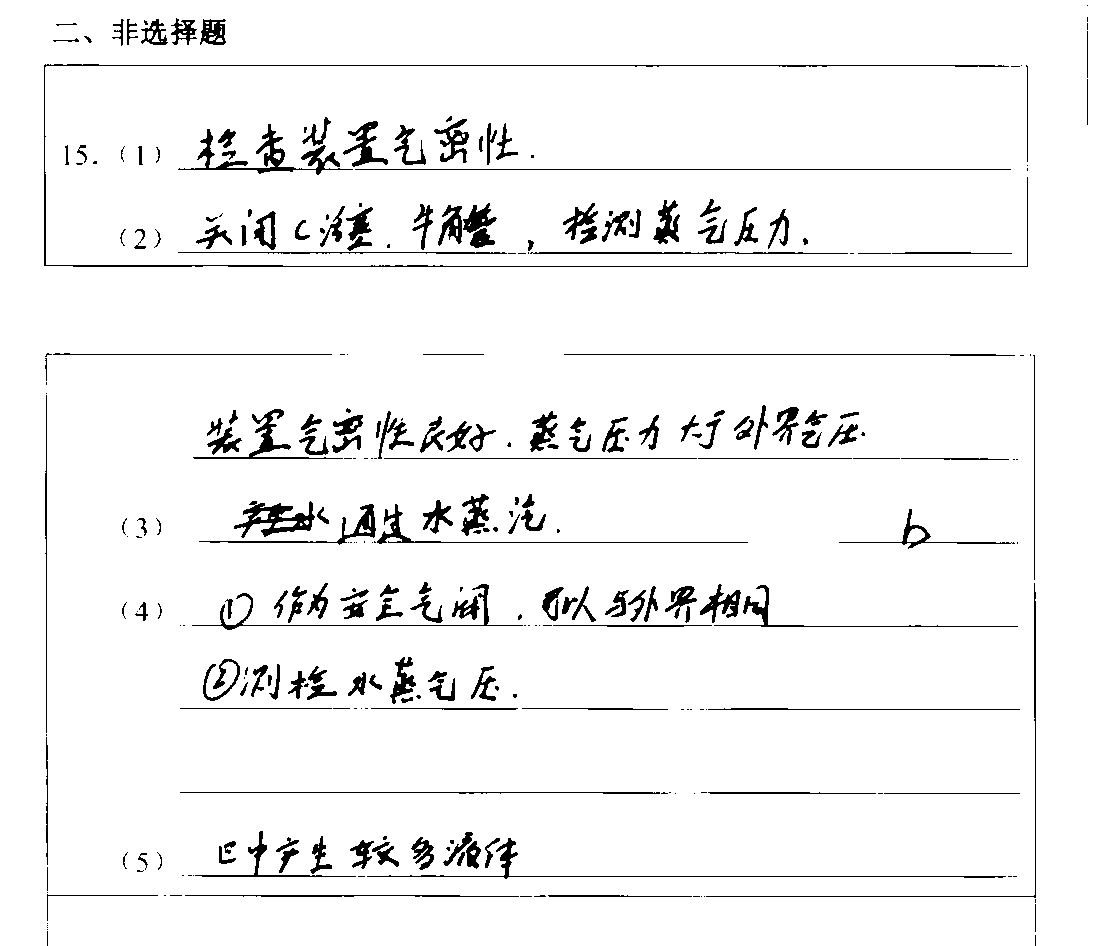 二、非选择题
15.（1） 检查装置气密性.
（2） 关闭C活塞.牛角管，检测蒸气压力.
装置气密性良好.蒸气压力大于外界气压
（3） 水蒸汽. b
（4） ①作为安全气阀.可以与外界相同
②测检水蒸气压.
（5） E中产生较多液体